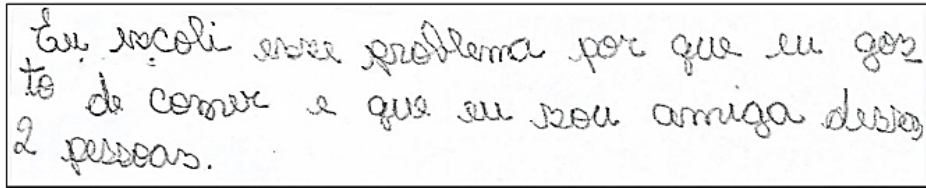 Eu iscoli esse problema por que eu gos
to de comer e que eu sou amiga dessas
2 pessoas.